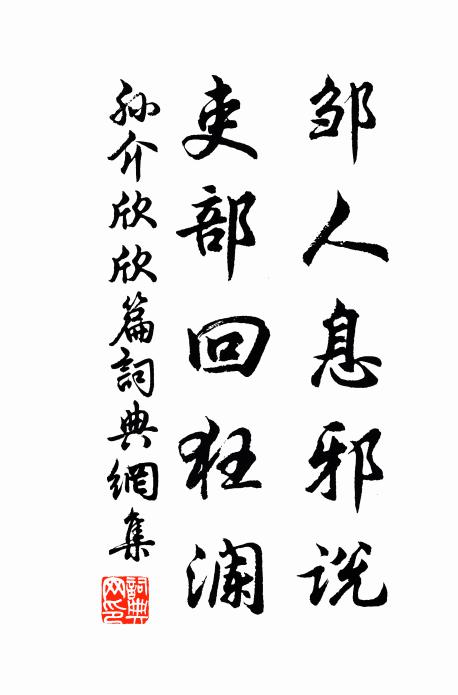 邹人息邪说
吏部回狂澜
孙介欣欣篇詞典網集
詞典网印